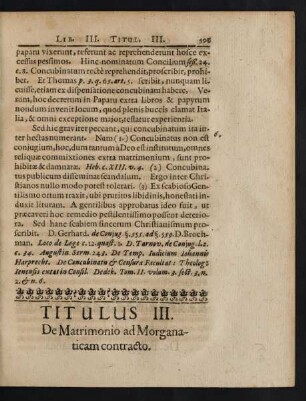 LIB. III. TITUL. III. 506
papatu vixerunt, referunt ac reprehenderunt hosce ex-
cessus pessimos. Hinc nominatum Concilium sess. 24.
c. 8. Concubinatum rectè reprehendit, proscribit, prohi-
bet. Et Thomas p. 3. q. 65. art. 5. scribit, nunquam li-
cuisse, etiam ex dispensatione concubinam habere. Ve-
rum, hoc decretum in Papatu extra libros & papyrum
nondum invenit locum, quod plenis buccis clamat Ita-
lia, & omni exceptione major, testatur experientia.
Sed hic graviter peccant, qui concubinatum ita in-
ter hactenus nominant. Nam (1.) Concubinatus non est
conjugium, hoc, dum tantum à Deo est institutum, omnes
reliquæ commixtiones extra matrimonium, sunt pro-
hibitæ & damnatæ. Heb. c. XIII. v. 4. (2) Concubina-
tus publicum disseminat scandalum. Ergo inter Chri-
stianos nullo modo potest tolerari. (3) Ex scabioso Gen-
tilismo ortum traxit, ubi prurius libidinis, honestati in-
duxit lituram. A gentilibus approbatus ideo fait, ut
præcaveri hoc remedio pestilentissimo possent deterio-
ra. Sed hanc scabiem sincerum Christianismum pro-
scribit. D. Gerhard. de Conjug. §. 255. ad §. 359. D. Broch-
man. Loco de Lege c. 12. quæst. 2. D. Tarnov. de Conjug. l. 2.
c. 34. Augustin. Serm. 243. De Temp. Judicium Iohannis
Harprecht. De Concubinatu & Censura Facultat: Theolog:
Ienensis extat in Consil. Dedek. Tom. III. volum. 3. sect. 3. n.
2. & n. 6.
6.
TITULUS III.
De Matrimonio ad Morgana-
ticam contracto.